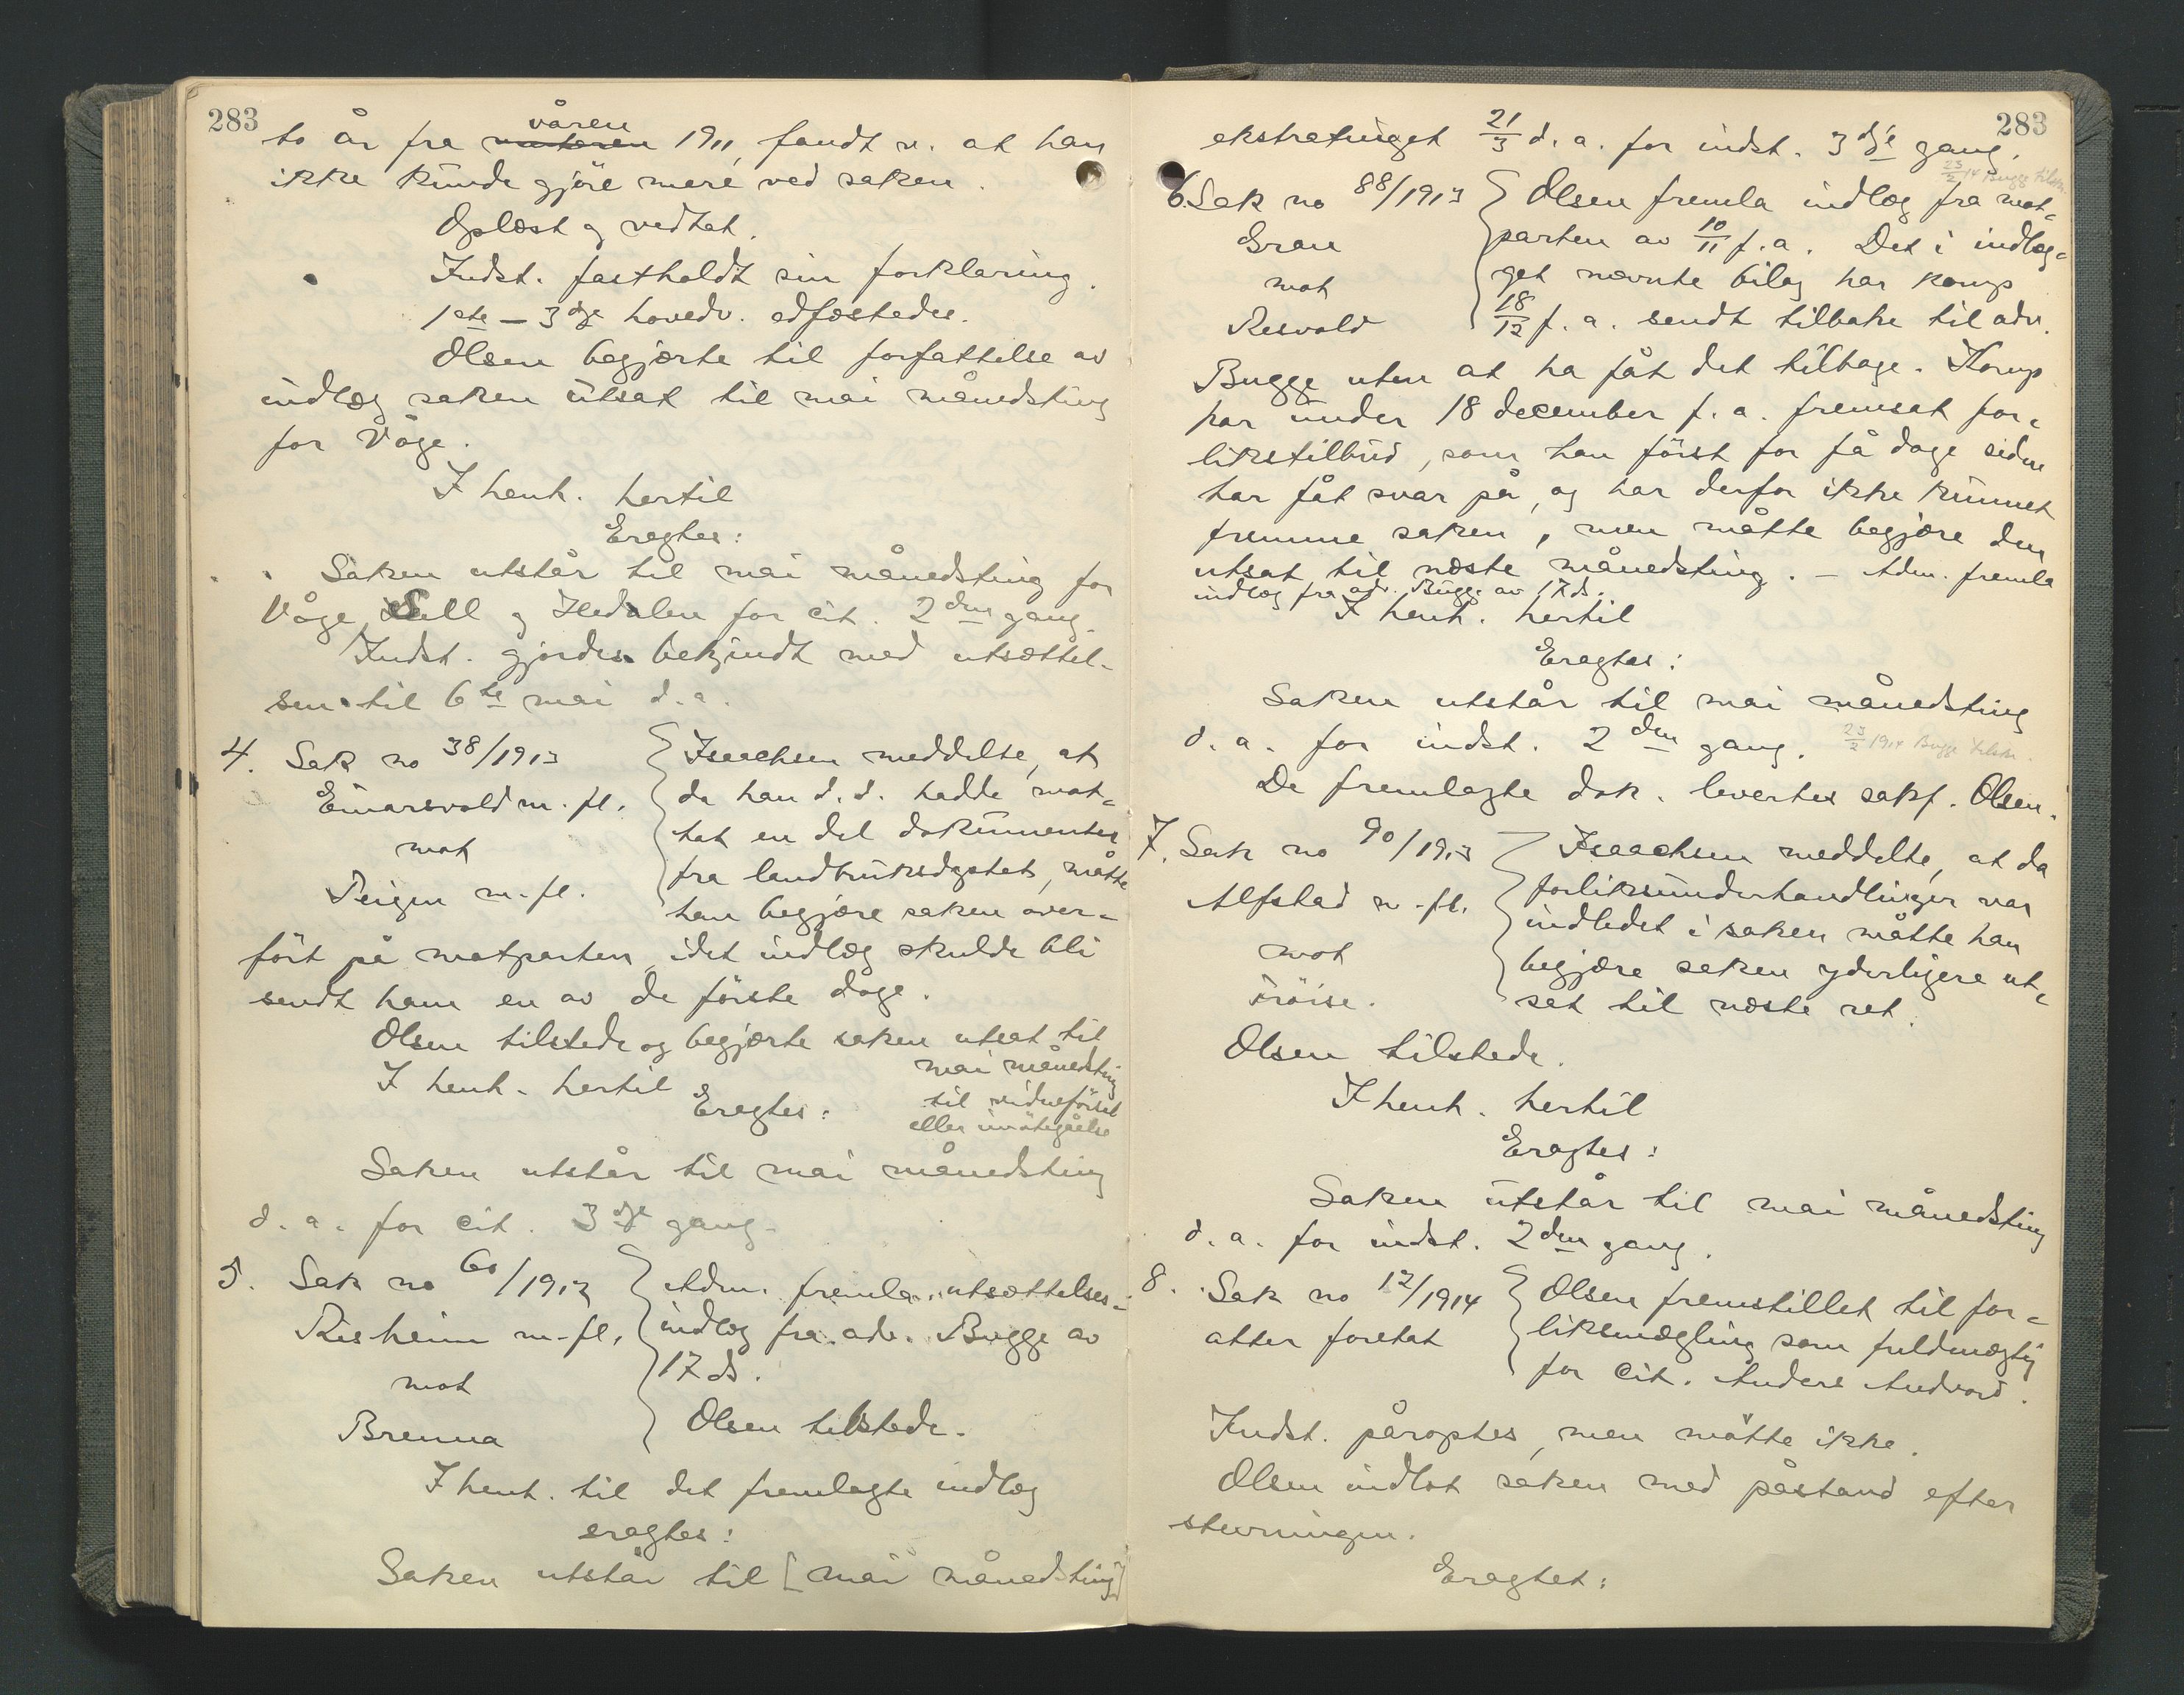 283
to år fra våren 1911, fandt v. at han
ikke kunde gjöre mere ved saken.
Oplæst og vedtat.
Indst. fastholdt sin forklaring.
1ste – 3dje hovedv. edfæstedes.
Olsen begjærte til forfattelse av
indlæg saken utsat til mai månedsting
for Våge.
I henh. hertil
Eragtes:
Saken utstår til mai månedsting for
Våge, Sell og Hedalen for cit. 2den gang.
Indst. gjordes bekjendt med utsættel-
sen til 6te mai d.a.
4. Sak no 38/1913
Einarsvold m.fl.
mot
Teigen m.fl.
Isachsen meddelte, at
da han d.d. hadde mot-
tat en del dokumenter
fra landbruksdeptet, måtte
han begjære saken over-
fört på motparten, idet indlæg skulde bli
sendt ham en av de förste dage.
Olsen tilstede og begjærte saken utsat til
mai månedsting
til vidneförsel
eller imötegåelse
I henh. hertil
Eragtes:
Saken utstår til mai månedsting
d.a. for cit. 3dje gang.
5. Sak no 60/1913
Risheim m.fl.
mot
Brenna
Adm. fremla utsættelses-
indlæg fra adv. Bugge av
17 ds.
Olsen tilstede.
I henh. til det fremlagte indlæg
eragtes:
Saken utstår til [mai månedsting]
283
ekstratinget 21/3 d.a. for indst. 3dje gang.
23/2 14 Bugge tilskr.
6. Sak no 88/1913
Gran
mot
Risvold
Olsen fremla indlæg fra mot-
parten av 10/11 f.a. Det i indlæg-
get nævnte bilag har Komp
18/12 f.a. sendt tilbake til adv.
Bugge uten at ha fåt det tilbage. Komp
har under 18 december f.a. fremsat for-
likstilbud, som han först for få dage siden
har fåt svar på, og har derfor ikke kunnet
fremme saken, men måtte begjære den
utsat til næste månedsting. – Adm. fremla
indlæg fra adv. Bugge av 17 ds.
I henh. hertil
Eragtes:
Saken utstår til mai månedsting
d.a. for indst. 2den gang.
23/2 1914 Bugge tilskr.
De fremlagte dok. levertes sakf. Olsen.
7. Sak no 90/1913
Alfstad m.fl.
mot
Fröise.
Isachsen meddelte, at da
forliksunderhandlinger var
indledet i saken måtte han
begjære saken yderligere ut-
sat til næste ret.
Olsen tilstede.
I henh. hertil
Eragtes:
Saken utstår til mai månedsting
d.a. for indst. 2den gang.
8. Sak no 12/1914
atter foretat
Olsen fremstillet til for-
liksmægling som fuldmægtig
for cit. Anders Andvord.
Indst. påroptes, men mötte ikke.
Olsen indlot saken med påstand efter
stevningen.
Eragtet: